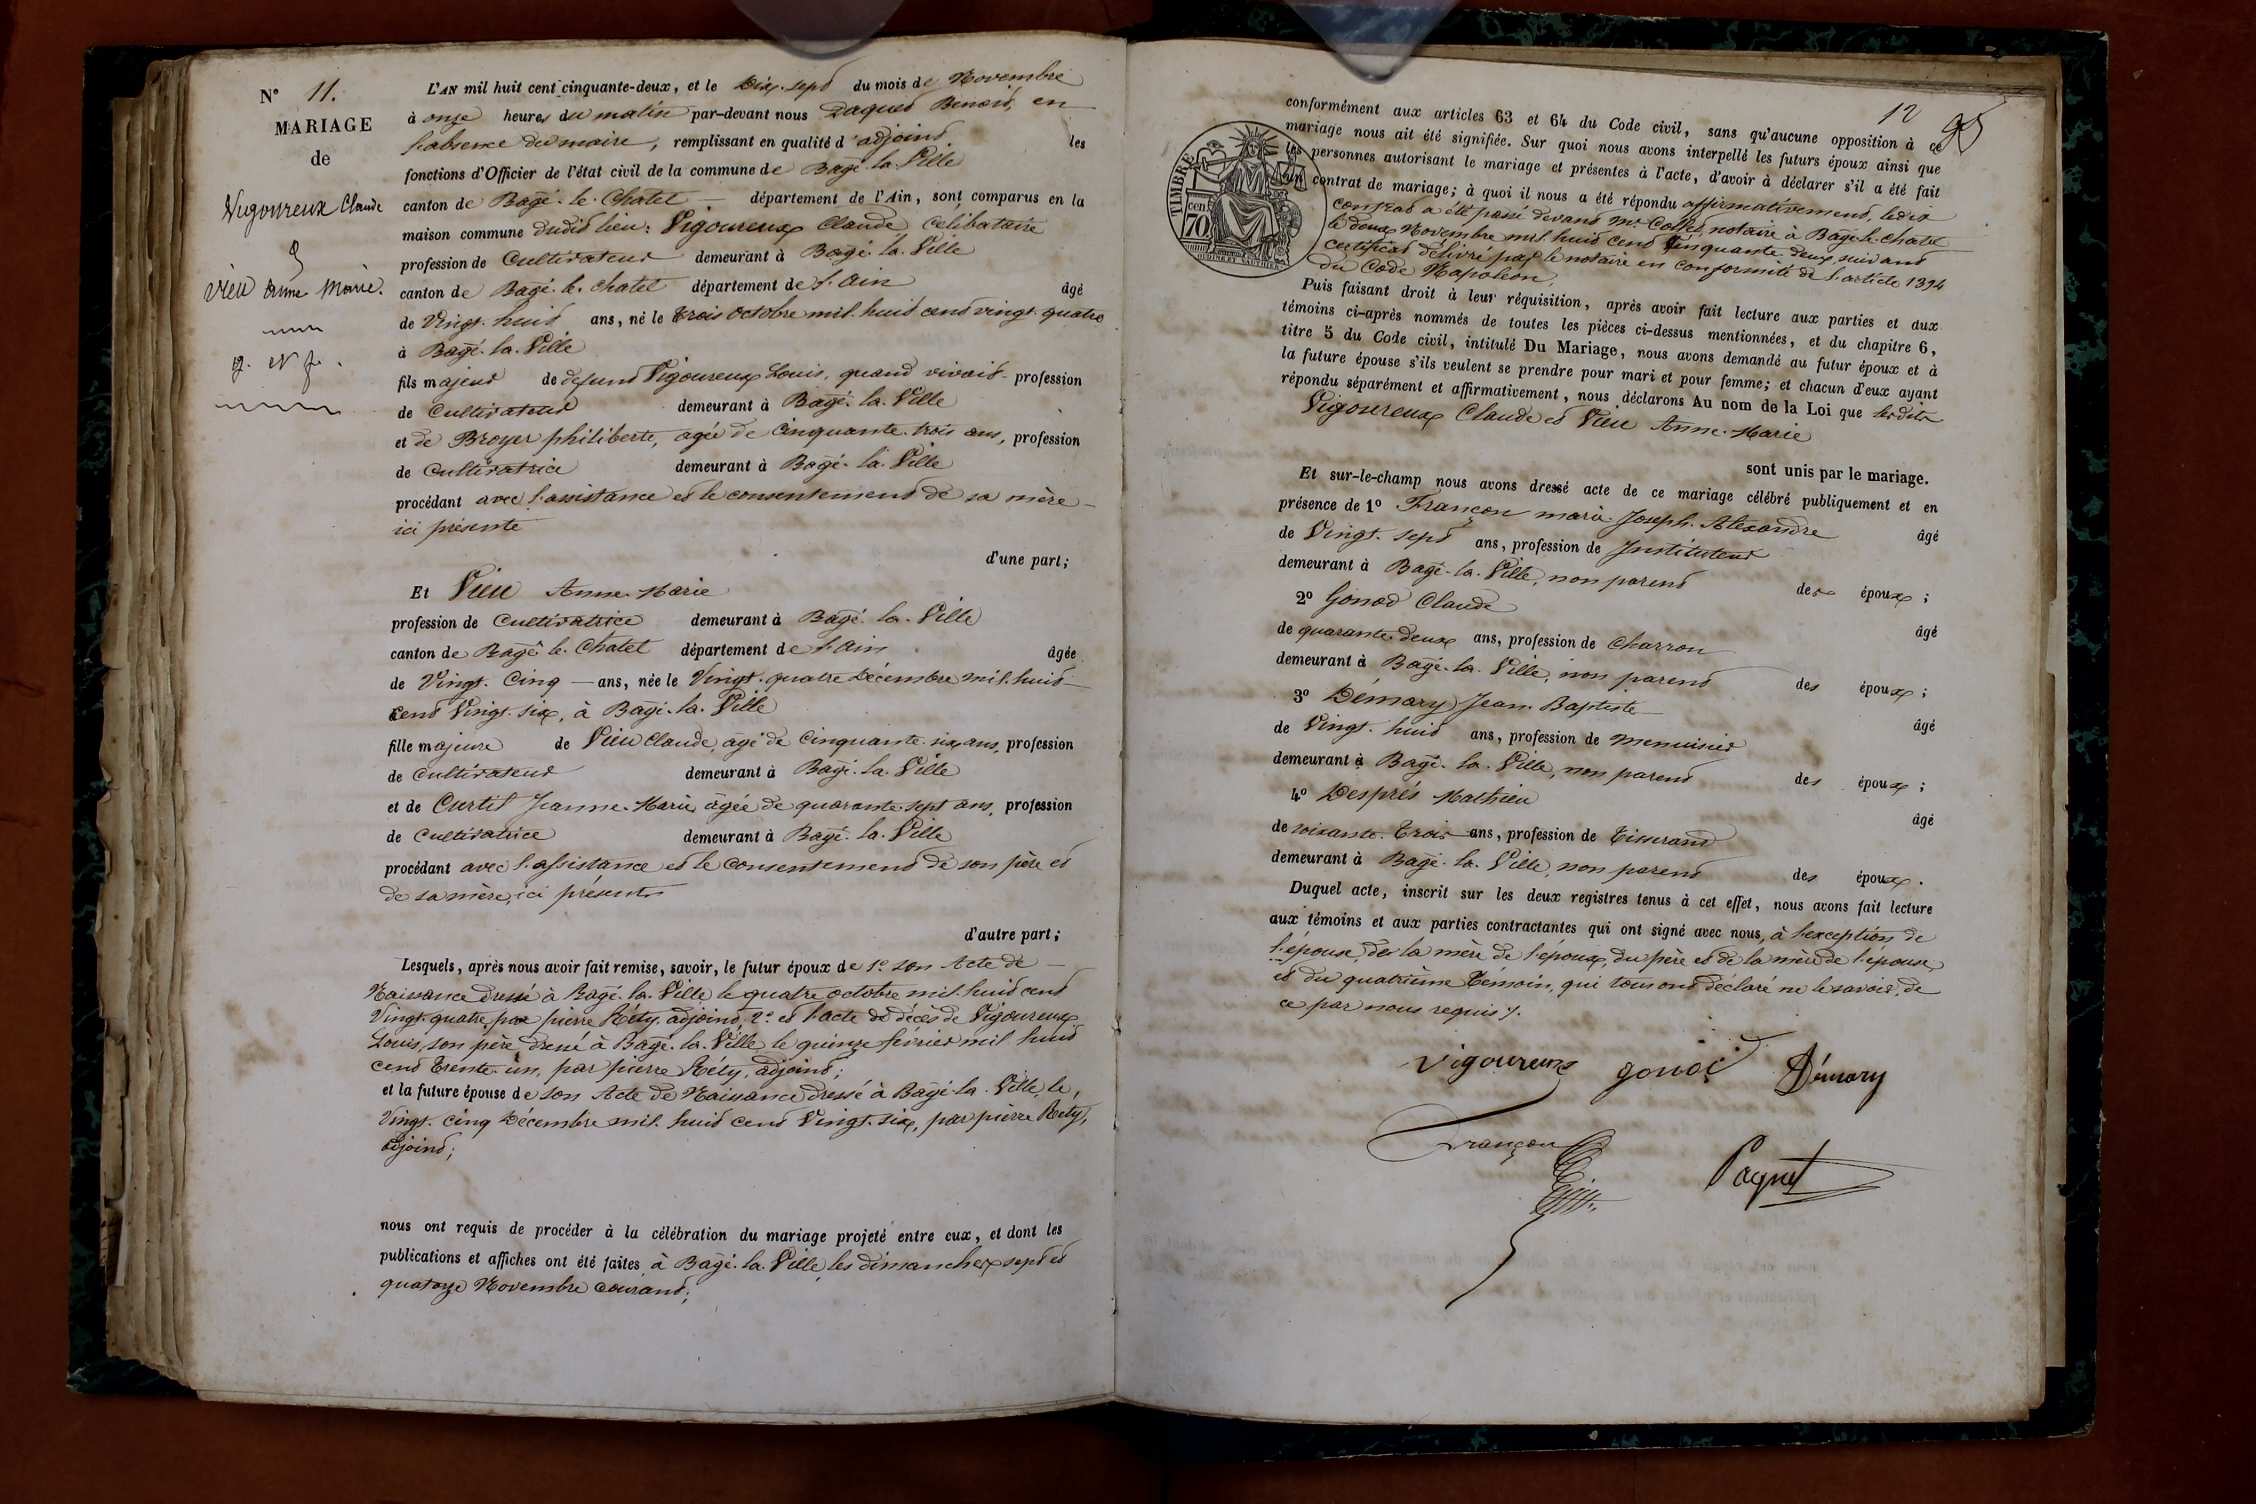 N° 11.
MARIAGE
de
Vigoureux Claude
&
Vieu Anne Marie.
L'AN mil huit cent cinquante-deux, et le Dix-sept du mois de Novembre
à onze heures du matin par-devant nous Paquet Benoit, en
l'absence du maire, remplissant en qualité d'adjoint les
fonctions d'Officier de l'état civil de la commune de Bagé-la-Ville
canton de Bagé-le-Chatel département de l'Ain, sont comparus en la
maison commune dudit lieu: Vigoureux Claude Celibataire
profession de Cultivateur demeurant à Bagé-la-Ville
canton de Bagé-le-chatel département de l'Ain âgé
de Vingt-huit ans, né le trois Octobre mil-huit cent vingt-quatre
à Bagé-la-Ville
fils majeur de defunt Vigoureux Louis, quand vivait profession
de Cultivateur demeurant à Bagé-la-Ville
et de Broyer philiberte, agée de Cinquante-trois ans, profession
de Cultivatrice demeurant à Bagé-la-Ville
procédant avec l'assistance et le consentement de sa mère
ici présente
d'une part;
Et Vieu Anne-Marie
profession de Cultivatrice demeurant à Bagé-la-Ville
canton de Bagé-le-Chatel département de l'Ain âgée
de Vingt-Cinq ans, née le Vingt-quatre Décembre mil-huit
Cent Vingt-six, à Bagé-la-Ville
fille majeure de Vieu Claude, âgé de Cinquante-six ans, profession
de Cultivateur demeurant à Bagé-la-Ville
et de Curtil Jeanne-Marie, âgée de quarante-sept ans, profession
de Cultivatrice demeurant à Bagé-la-Ville
procédant avec l'assistance et le Consentement de son père et
de sa mère, ici présents
d'autre part;
Lesquels, après nous avoir fait remise, savoir, le futur époux de 1° son Acte de
Naissance dressé à Bagé-la-Ville le quatre octobre mil-huit cent
Vingt-quatre, par pierre Réty, adjoint, 2° et l'acte de décès de Vigoureux
Louis, son père dressé à Bagé-la-Ville le quinze février mil huit
Cent Trente-un, par pierre Réty, adjoint;
et la future épouse de son Acte de Naissance dressé à Bagé-la-Ville, le,
Vingt-Cinq Décembre mil huit cent Vingt-six, par pierre Réty,
adjoint;
nous ont requis de procéder à la célébration du mariage projeté entre eux, et dont les
publications et affiches ont été faites à Bagé-la-Ville, les dimanches sept et
quatorze Novembre courant;
12
95
TIMBRE
cent
70
OUDINE ET VAUTHIER
conformément aux articles 63 et 64 du Code civil, sans qu'aucune opposition à ce
mariage nous ait été signifiée. Sur quoi nous avons interpellé les futurs époux ainsi que
les personnes autorisant le mariage et présentes à l'acte, d'avoir à déclarer s'il a été fait
un contrat de mariage; à quoi il nous a été répondu affirmativement, ledit
contrat a été passé devant Me Collet, notaire à Bagé-le-chatel
le deux Novembre mil huit cent Cinquante-deux, suivant
certificat délivré par le notaire en conformité de l'article 1394
du Code Napoléon.
Puis faisant droit à leur réquisition, après avoir fait lecture aux parties et aux
témoins ci-après nommés de toutes les pièces ci-dessus mentionnées, et du chapitre 6,
titre 5 du Code civil, intitulé Du Mariage, nous avons demandé au futur époux et à
la future épouse s'ils veulent se prendre pour mari et pour femme; et chacun d'eux ayant
répondu séparément et affirmativement, nous déclarons Au nom de la Loi que lesdits
Vigoureux Claude et Vieu Anne-Marie
sont unis par le mariage.
Et sur-le-champ nous avons dressé acte de ce mariage célébré publiquement et en
présence de 1° Françon marie-Joseph-Alexandre âgé
de Vingt-sept ans, profession de Instituteur
demeurant à Bagé-la-Ville, non parent des époux;
2° Gonod Claude âgé
de quarante-deux ans, profession de Charron
demeurant à Bagé-la-Ville, non parent des époux;
3° Démary Jean-Baptiste âgé
de Vingt-huit ans, profession de menuisier
demeurant à Bagé-la-Ville, non parent des époux;
4° Després Mathieu âgé
de soixante-Trois ans, profession de Tisserand
demeurant à Bagé-la-Ville, non parent des époux.
Duquel acte, inscrit sur les deux registres tenus à cet effet, nous avons fait lecture
aux témoins et aux parties contractantes qui ont signé avec nous, à l'exception de
l'épouse, de la mère de l'époux, du père et de la mère de l'épouse,
et du quatrième Témoin, qui tous ont déclaré ne le savoir, de
ce par nous requis.
Vigoureux gonod Démary
Françon
Paquet